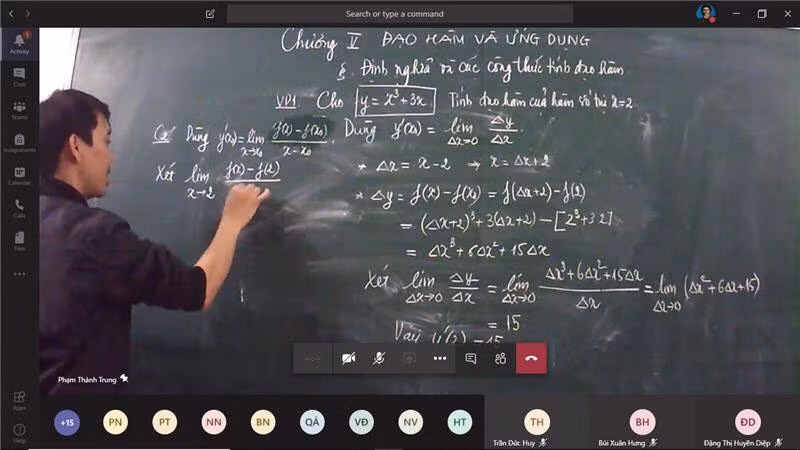 Search or type a command
Activity
Chat
Teams
Assignments
Calendar
Calls
Files
Apps
Help
Chương V ĐẠO HÀM VÀ ỨNG DỤNG
§ Định nghĩa và các công thức tính đạo hàm
VD1. Cho y = x³ + 3x Tính đạo hàm của hàm số tại x=2
C2 Dùng y'(x₀) = lim x→x₀ f(x) − f(x₀) / x − x₀
Xét lim x→2 f(x) − f(2)
Dùng y'(x₀) = lim Δx→0 Δy / Δx
* Δx = x − 2 → x = Δx + 2
* Δy = f(x) − f(x₀) = f(Δx+2) − f(2)
= (Δx+2)³ + 3(Δx+2) − [2³ + 3.2]
= Δx³ + 6Δx² + 15Δx
Xét lim Δx→0 Δy / Δx = lim Δx→0 Δx³ + 6Δx² + 15Δx / Δx = lim Δx→0 (Δx² + 6Δx + 15)
= 15
Vậy y'(2) = 15
Phạm Thành Trung
+15
PN
PT
NN
BN
QÁ
VĐ
NV
HT
TH
Trần Đức Huy
BH
Bùi Xuân Hưng
ĐD
Đặng Thị Huyền Diệp